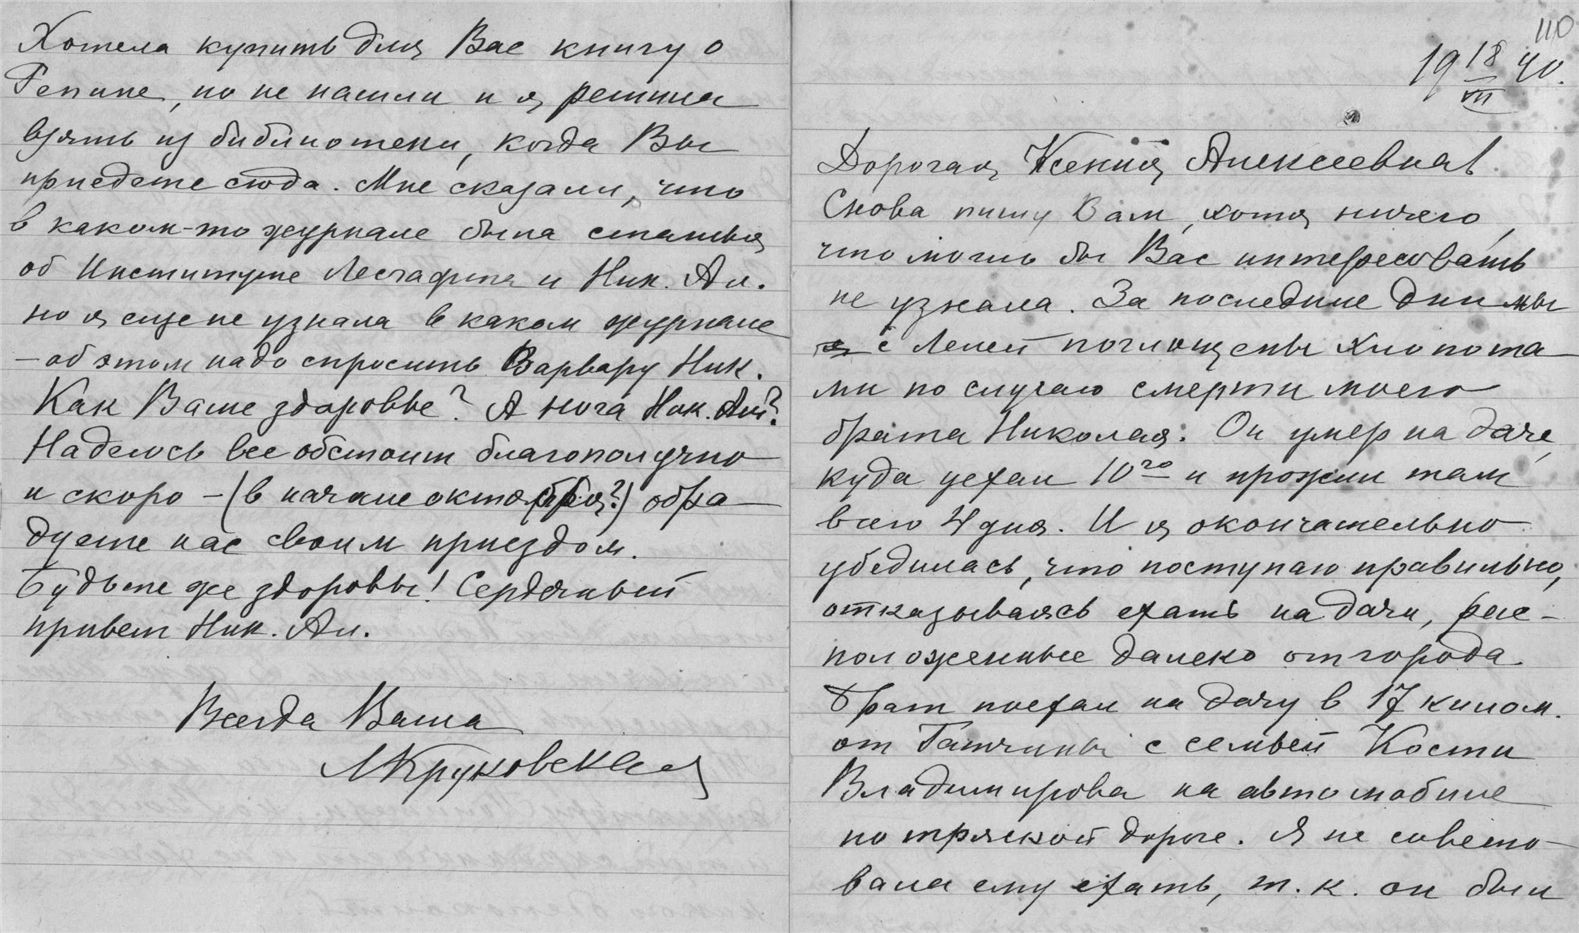 Хотела купить для Вас книгу о
Репине, но не нашли и я решила
взять из библиотеки, когда Вы
приедете сюда. Мне сказали, что
в каком-то журнале была статья
об Институте Лесгафта и Ник. Ал.
но я еще не узнала в каком журнале
– об этом надо спросить Варвару Ник.
Как Ваше здоровье? А нога Ник. Ал.?
Надеюсь все обстоит благополучно
и скоро – (в начале октября?) обра-
дуете нас своим приездом.
Будьте же здоровы! Сердечный
привет Ник. Ал.
Всегда Ваша
Л Круковская
110
19 18/VII 40.
Дорогая Ксения Алексеевна!
Снова пишу Вам, хотя ничего,
что могло бы Вас интересовать
не узнала. За последние дни мы
с Лелей поглощены хлопота-
ми по случаю смерти моего
брата Николая. Он умер на даче,
куда уехал 10го и прожил там
всего 4 дня. И я окончательно
убедилась, что поступаю правильно,
отказываясь ехать на дачи, рас-
положенные далеко от города.
Брат поехал на дачу в 17 килом.
от Гатчины с семьей Кости
Владимирова на автомобиле
по тряской дороге. Я не совето-
вала ему ехать, т.к. он был